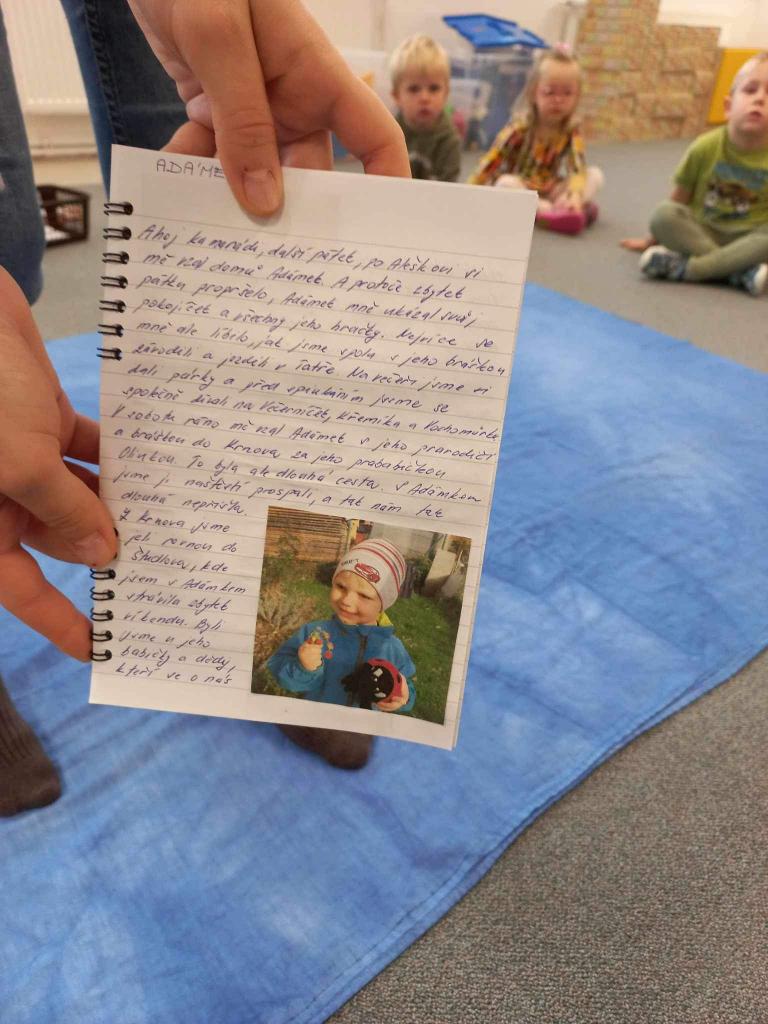 ADÁME
Ahoj kamarádi, další pátek, po Aleškovi si
mě vzal domů Adámek. A protože zbytek
pátku propršelo, Adámek mně ukázal svůj
pokojíček a všechny jeho hračky. Nejvíce se
mně ale líbilo, jak jsme spolu s jeho bráškou
závodili a jezdili v Tatře. Na večeři jsme si
dali párky a před spinkáním jsme se
společně dívali na Večerníček, Křemílka a Vochomůrku
V sobotu ráno mě vzal Adámek s jeho prarodiči
a bráškou do Krnova za jeho prababičkou
Olinkou. To byla ale dlouhá cesta. S Adámkem
jsme ji naštěstí prospali, a tak nám tak
dlouhá nepřišla.
Z Krnova jsme
jeli rovnou do
Študlova, kde
jsem s Adámkem
strávila zbytek
víkendu. Byli
jsme u jeho
babičky a dědy,
kteří se o nás